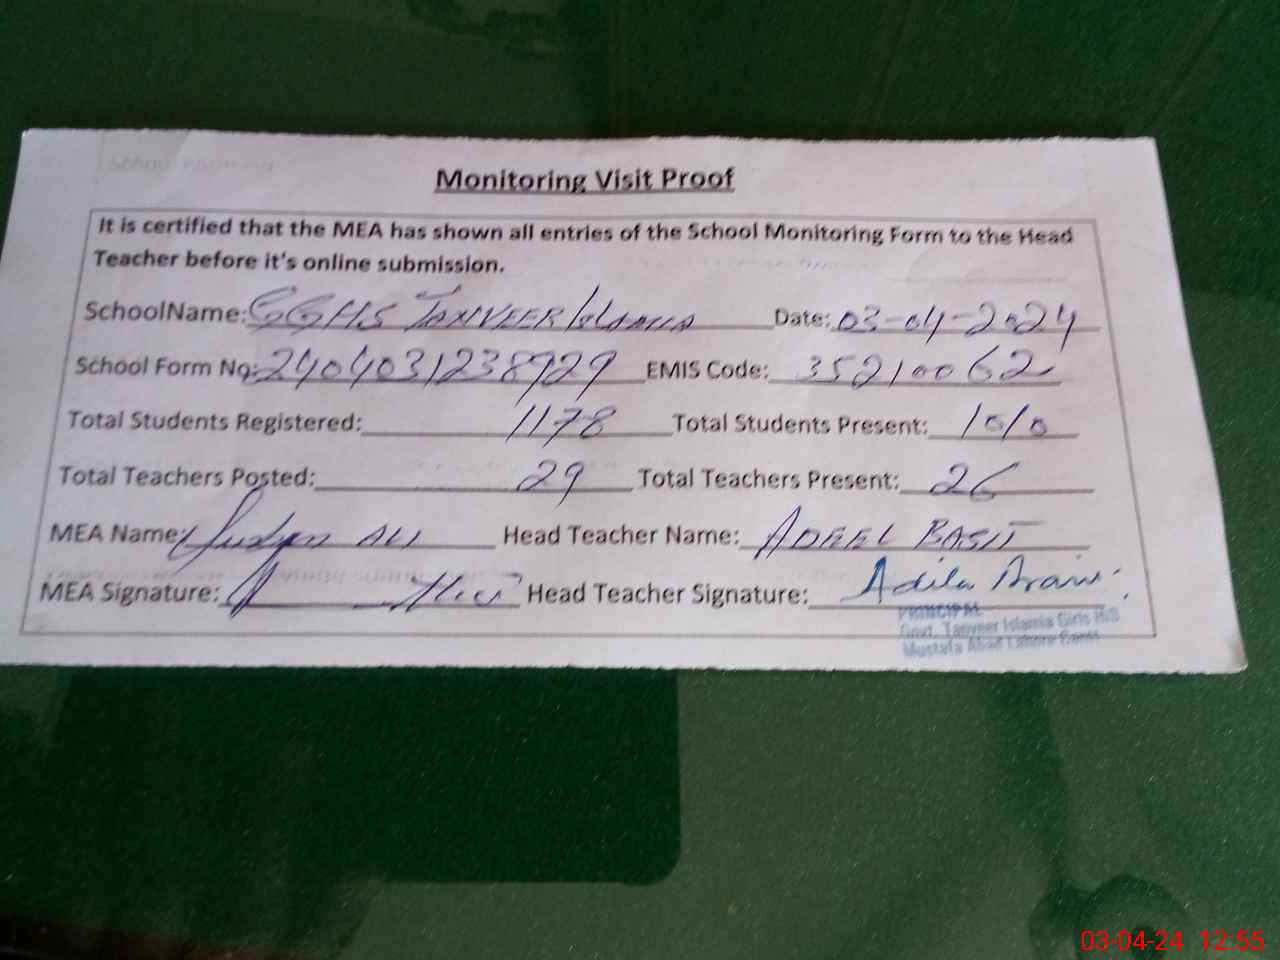 Monitoring Visit Proof
It is certified that the MEA has shown all entries of the School Monitoring Form to the Head
Teacher before it's online submission.
SchoolName: GGHS TANVEER Islamia Date: 03-04-2024
School Form No: 2404031238929 EMIS Code: 35210062
Total Students Registered: 1178 Total Students Present: 1010
Total Teachers Posted: 29 Total Teachers Present: 26
MEA Name: ALI Head Teacher Name: ADEEL BASIT
MEA Signature: Head Teacher Signature: Adila
PRINCIPAL
Govt. Tanveer Islamia Girls H/S
Mustafa Abad Lahore Cantt.
03-04-24 12:55